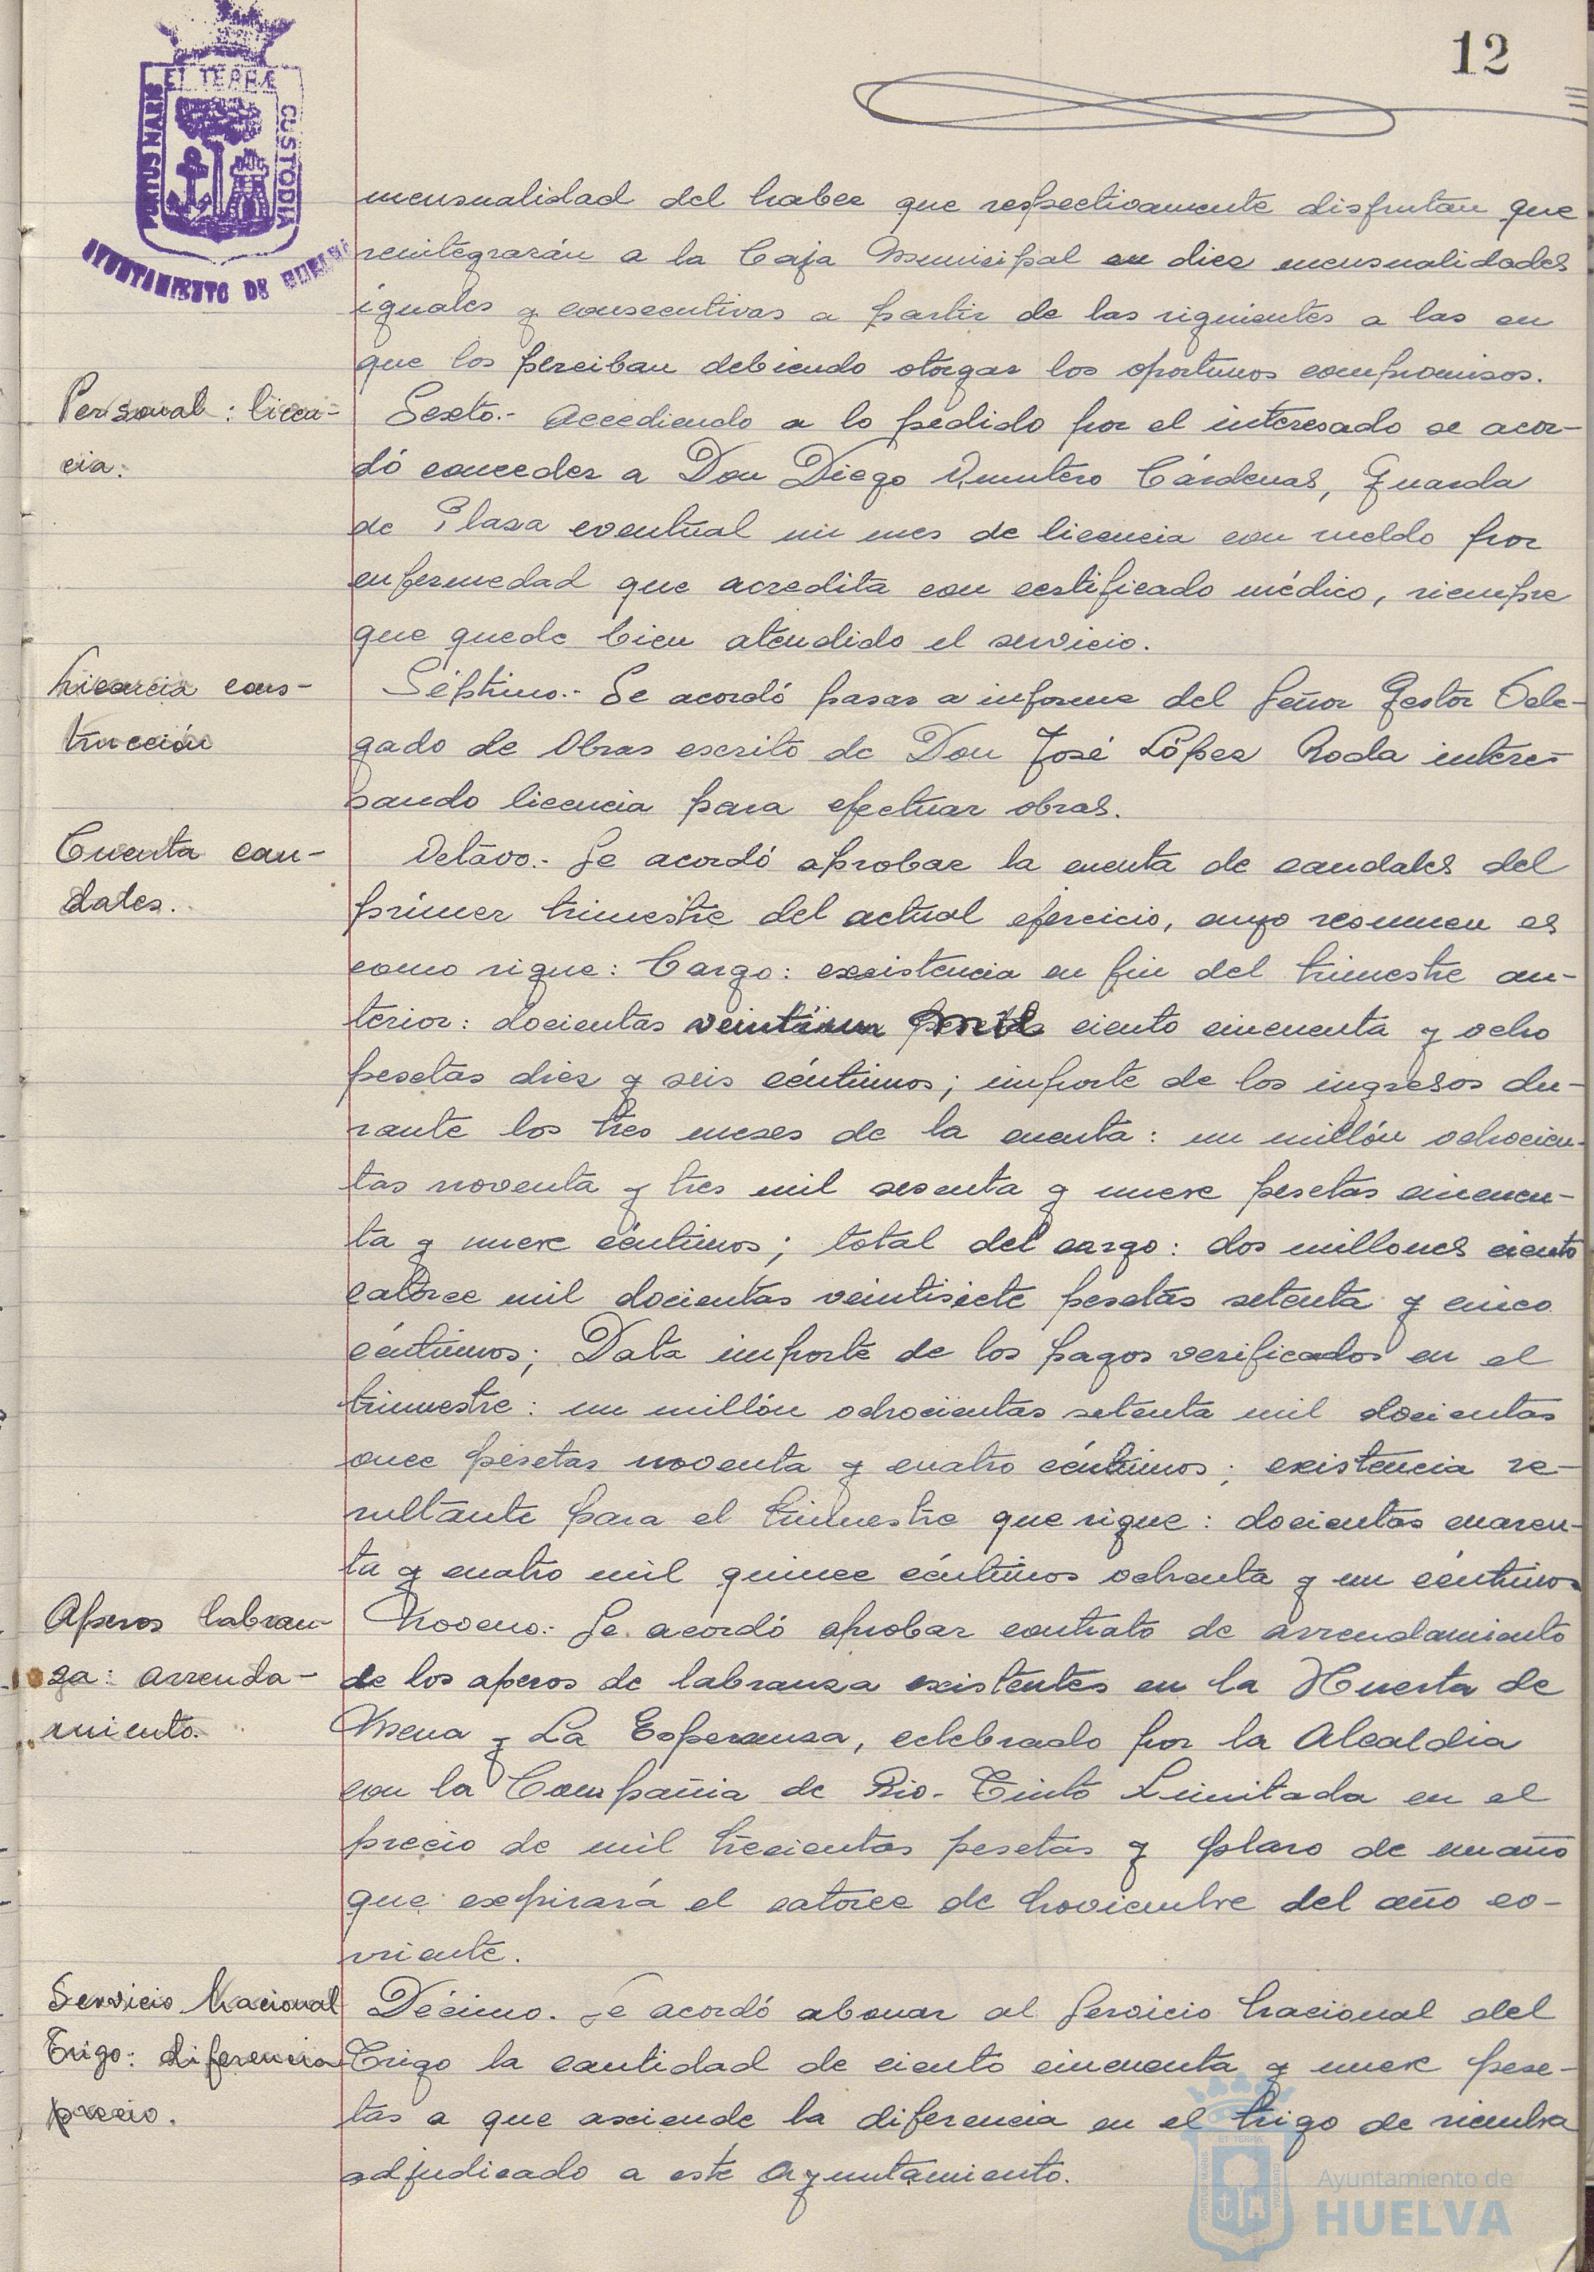 12
PORTUS MARIS
ET TERRÆ
CUSTODIA
AYUNTAMIENTO DE HUELVA
mensualidad del haber que respectivamente disfrutan que
reintegrarán a la Caja Municipal en diez mensualidades
iguales y consecutivas a partir de las siguientes a las en
que los perciban debiendo otorgar los oportunos compromisos.
Personal: licen-
cia.
Sexto.- Accediendo a lo pedido por el interesado se acor-
dó conceder a Don Diego Quintero Cárdenas, Guarda
de Plaza eventual un mes de licencia con sueldo por
enfermedad que acredita con certificado médico, siempre
que quede bien atendido el servicio.
Licencia cons-
trucción
Séptimo.- Se acordó pasar a informe del Señor Gestor Dele-
gado de Obras escrito de Don José López Roda intere-
sando licencia para efectuar obras.
Cuenta cau-
dales.
Octavo.- Se acordó aprobar la cuenta de caudales del
primer trimestre del actual ejercicio, cuyo resumen es
como sigue: Cargo: existencia en fin del trimestre an-
terior: docientas veintiun mil ciento cincuenta y ocho
pesetas diez y seis céntimos; importe de los ingresos du-
rante los tres meses de la cuenta: un millón ochocien-
tas noventa y tres mil sesenta y nueve pesetas cincuen-
ta y nueve céntimos; total del cargo: dos millones ciento
catorce mil docientas veintisiete pesetas setenta y cinco
céntimos; Data importe de los pagos verificados en el
trimestre: un millón ochocientas setenta mil docientas
once pesetas noventa y cuatro céntimos; existencia re-
sultante para el trimestre que sigue: docientas cuaren-
ta y cuatro mil quince céntimos ochenta y un céntimos
Aperos labran-
za: arrenda-
miento.
Noveno.- Se acordó aprobar contrato de arrendamiento
de los aperos de labranza existentes en la Huerta de
Mena y La Esperanza, celebrado por la Alcaldia
con la Compañia de Rio-Tinto Limitada en el
precio de mil trecientas pesetas y plazo de un año
que expirará el catorce de Noviembre del año co-
rriente.
Servicio Nacional
Trigo: diferencia
precio.
Décimo. Se acordó abonar al Servicio Nacional del
Trigo la cantidad de ciento cincuenta y nueve pese-
tas a que asciende la diferencia en el trigo de siembra
adjudicado a este Ayuntamiento.
Ayuntamiento de
HUELVA